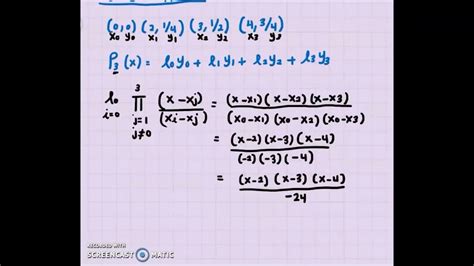 (0,0) (2, 1/4) (3, 1/2) (4, 3/4)
x₀ y₀ x₁ y₁ x₂ y₂ x₃ y₃
P₃(x) = l₀y₀ + l₁y₁ + l₂y₂ + l₃y₃
l₀ 3 ∏ (x-xⱼ)/(xᵢ-xⱼ) = (x-x₁)(x-x₂)(x-x₃)/(x₀-x₁)(x₀-x₂)(x₀-x₃)
i=0 j=1
j≠0
= (x-2)(x-3)(x-4)/(-2)(-3)(-4)
= (x-2)(x-3)(x-4)/-24
RECORDED WITH
SCREENCAST MATIC